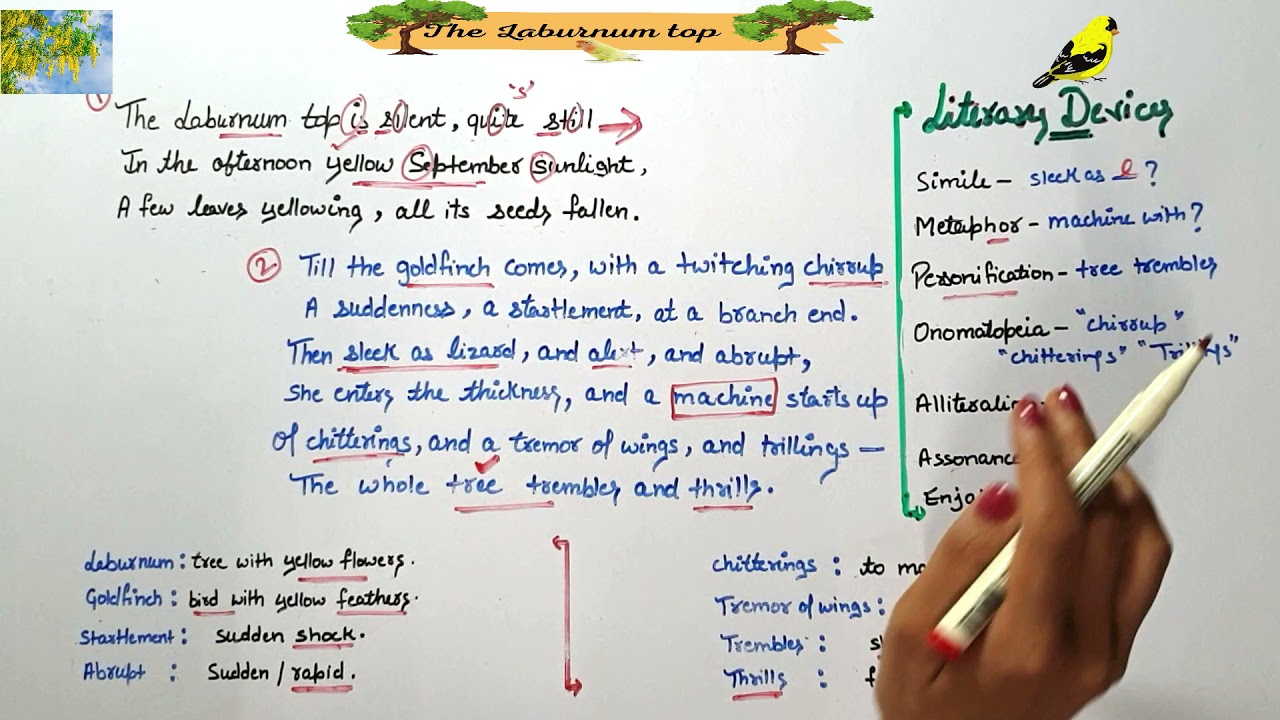 The Laburnum top
① 's'
The Laburnum top is silent, quite still →
In the afternoon yellow September sunlight,
A few leaves yellowing, all its seeds fallen.
② Till the goldfinch comes, with a twitching chirrup
A suddenness, a startlement, at a branch end.
Then sleek as lizard, and alert, and abrupt,
She enters the thickness, and a machine starts up
Of chitterings, and a tremor of wings, and trillings —
The whole tree trembles and thrills.
Laburnum : tree with yellow flowers.
Goldfinch : bird with yellow feathers.
Startlement : sudden shock.
Abrupt : Sudden / rapid.
Literary Devices
Simile - sleek as ?
Metaphor - machine with ?
Personification - tree trembles
Onomatopeia - "chirrup"
"chitterings"
Assonance
chitterings : to
Tremor of wings :
Trembles :
Thrills :